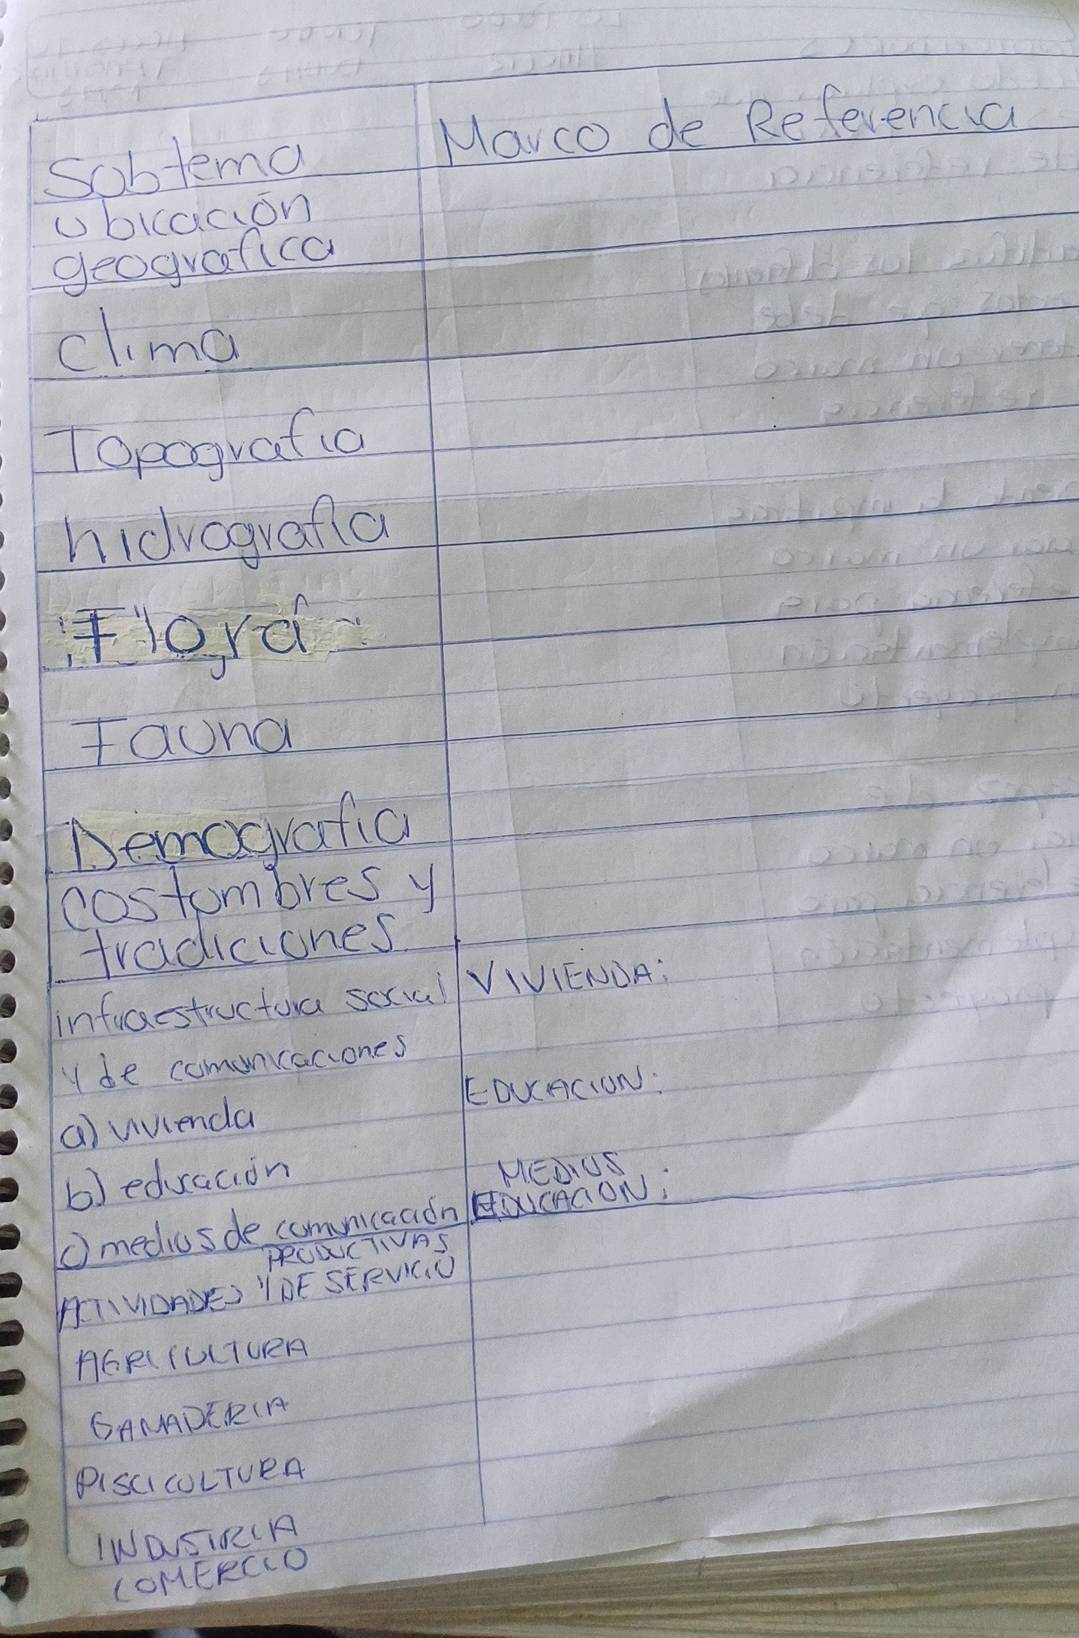 Subtema
Marco de Referencia
Ubicación
geografica
clima
Topografia
hidrografia
Flora
Fauna
Demografia
costumbres y
tradiciones
infraestructura social
y de comunicaciones
a) vivienda
b) educación
c) medios de comunicación
VIVIENDA:
EDUCACION:
MEDIOS
EDUCACION:
PRODUCTIVAS
ACTIVIDADES Y DE SERVICIO
AGRICULTURA
GANADERIA
PISCICULTURA
INDUSTRIA
COMERCIO